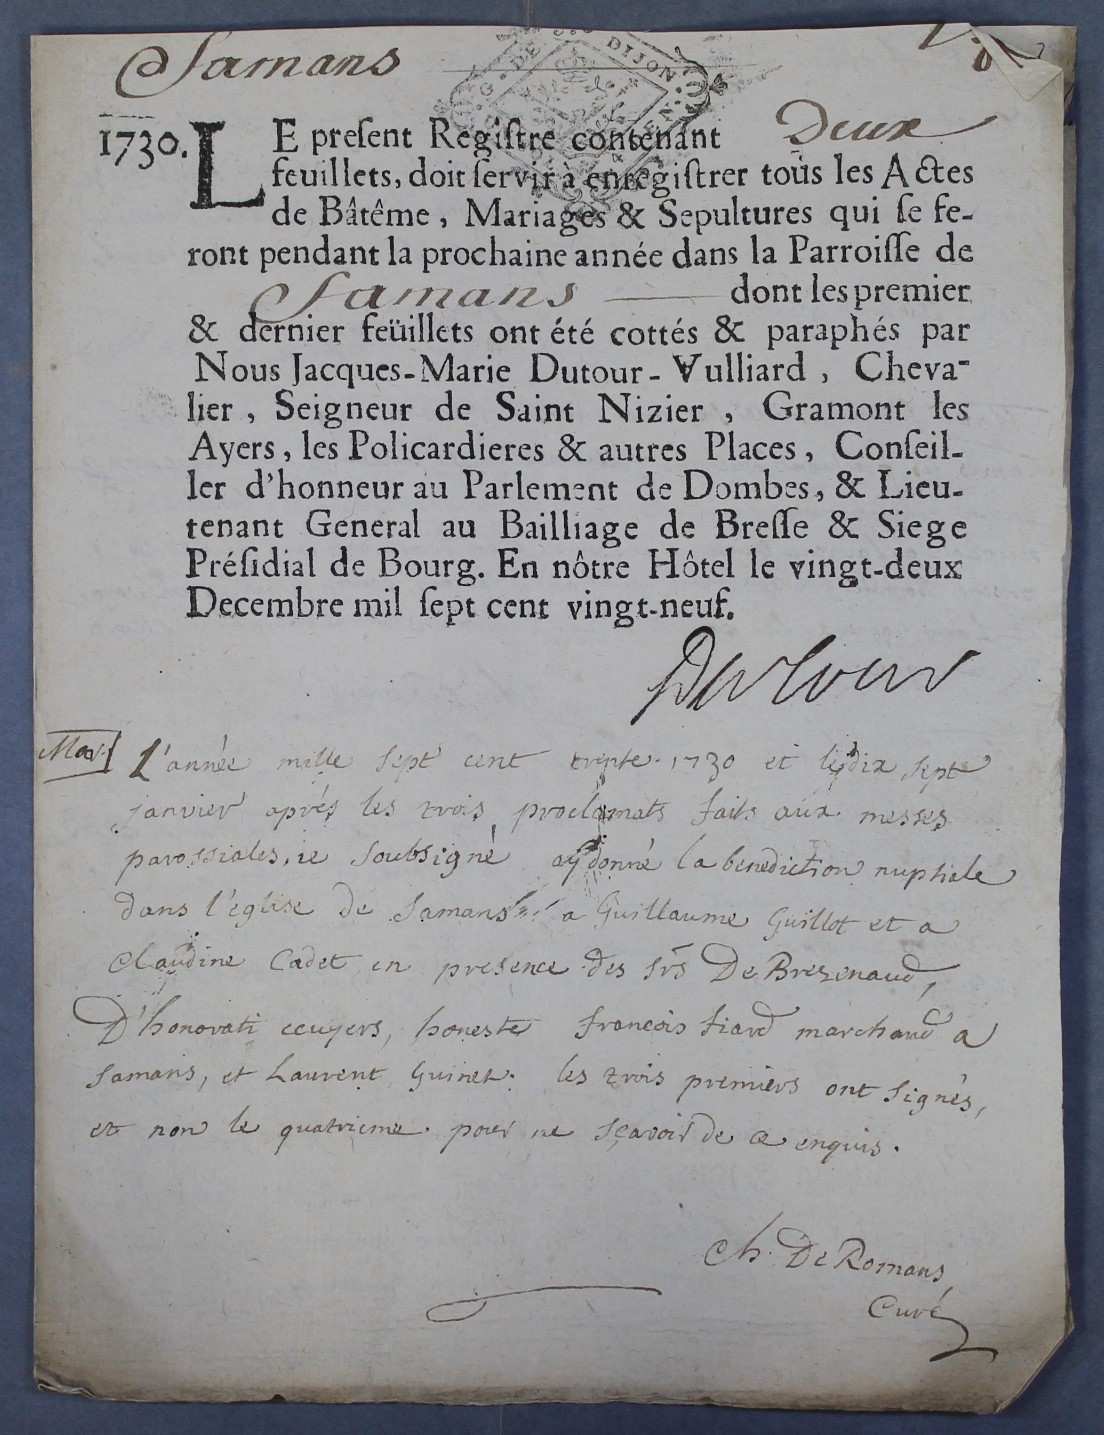 Samans
DE DIJON
1730. LE preſent Regiſtre contenant Deux
feuillets, doit ſervir à enregiſtrer toüs les Actes
de Bâtême, Mariages & Sepultures qui ſe fe-
ront pendant la prochaine année dans la Parroiſſe de
Samans dont les premier
& dernier feüillets ont été cottés & paraphés par
Nous Jacques-Marie Dutour-Vulliard, Cheva-
lier, Seigneur de Saint Nizier, Gramont les
Ayers, les Policardieres & autres Places, Conſeil-
ler d'honneur au Parlement de Dombes, & Lieu-
tenant General au Bailliage de Breſſe & Siege
Préſidial de Bourg. En nôtre Hôtel le vingt-deux
Decembre mil ſept cent vingt-neuf.
Dutour
Mar.
L'année mille sept cent trente. 1730 et le dix sept
janvier aprés les trois proclamats faits aux messes
parossiales, ie soubsigné ay donné la benediction nuptiale
dans l'église de Samans a Guillaume Guillot et a
Claudine Cadet en presence des srs De Brezenaud,
D'honorati ecuyers, honeste françois fiard marchand a
Samans, et Laurent Guinet. les trois premiers ont signés,
et non le quatrieme. pour ne sçavoir de ce enquis.
Ch. De Romans
Curé